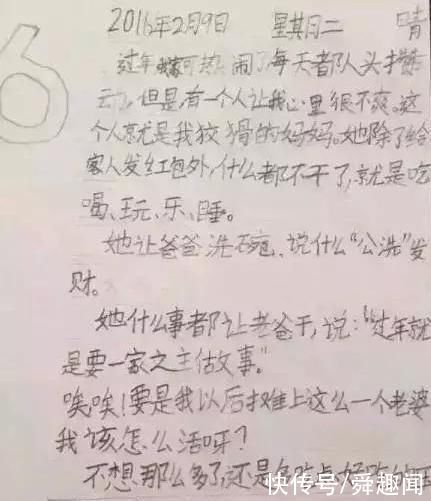 6
2016年2月9日 星期二 晴
过年我家可热闹了每天都人头攒
动,但是,有一个人让我心里很不爽。这
个人就是我狡猾的妈妈。她除了给
客人发红包外,什么都不干了,就是吃
喝、玩、乐、睡。
她让爸爸洗碗、说什么“公洗”发
财。
她什么事都让老爸干,说:“过年就
是要一家之主做事。”
唉唉!要是我以后摊上这么一个老婆
我该怎么活呀?
不想那么多了,还是
快传号/舜趣闻